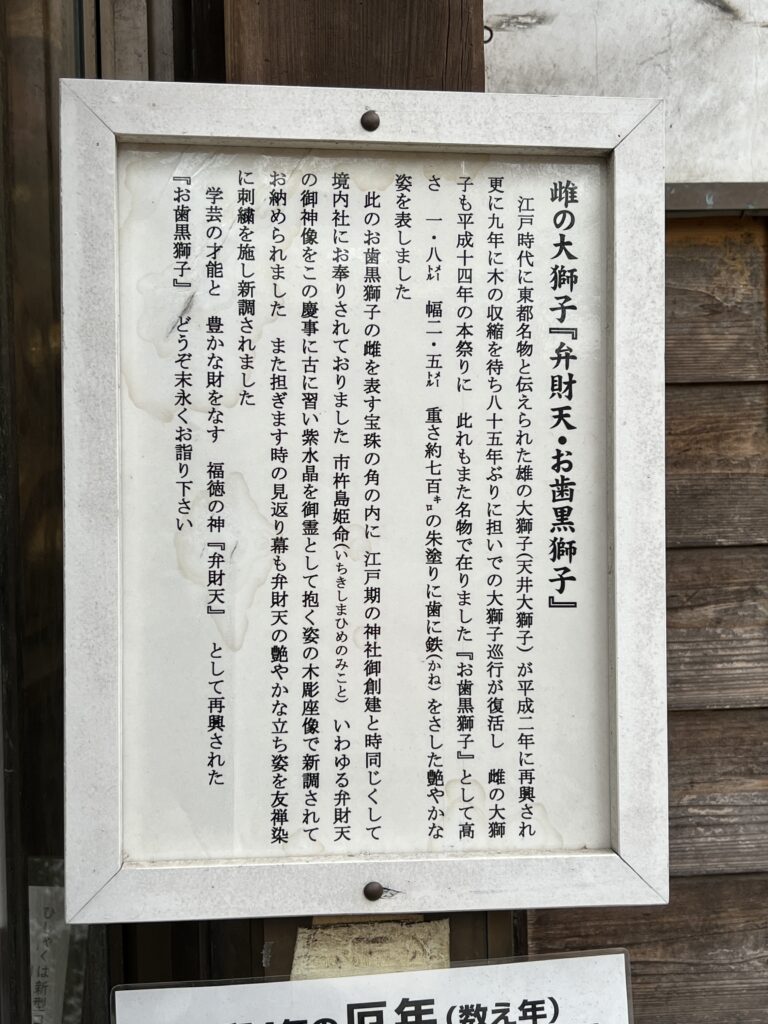 雌の大獅子『弁財天・お歯黒獅子』
江戸時代に東都名物と伝えられた雄の大獅子(天井大獅子)が平成二年に再興され
更に九年に木の収縮を待ち八十五年ぶりに担いでの大獅子巡行が復活し 雌の大獅
子も平成十四年の本祭りに 此れもまた名物で在りました『お歯黒獅子』として高
さ 一・八㍍ 幅二・五㍍ 重さ約七百㌔の朱塗りに歯に鉄(かね)をさした艶やかな
姿を表しました
此のお歯黒獅子の雌を表す宝珠の角の内に 江戸期の神社御創建と時同じくして
境内社にお奉りされておりました 市杵島姫命(いちきしまひめのみこと) いわゆる弁財天
の御神像をこの慶事に古に習い紫水晶を御霊として抱く姿の木彫座像で新調されて
お納められました また担ぎます時の見返り幕も弁財天の艶やかな立ち姿を友禅染
に刺繍を施し新調されました
学芸の才能と 豊かな財をなす 福徳の神『弁財天』 として再興された
『お歯黒獅子』 どうぞ末永くお詣り下さい
年の厄年(数え年)
ひしゃくは新型コ